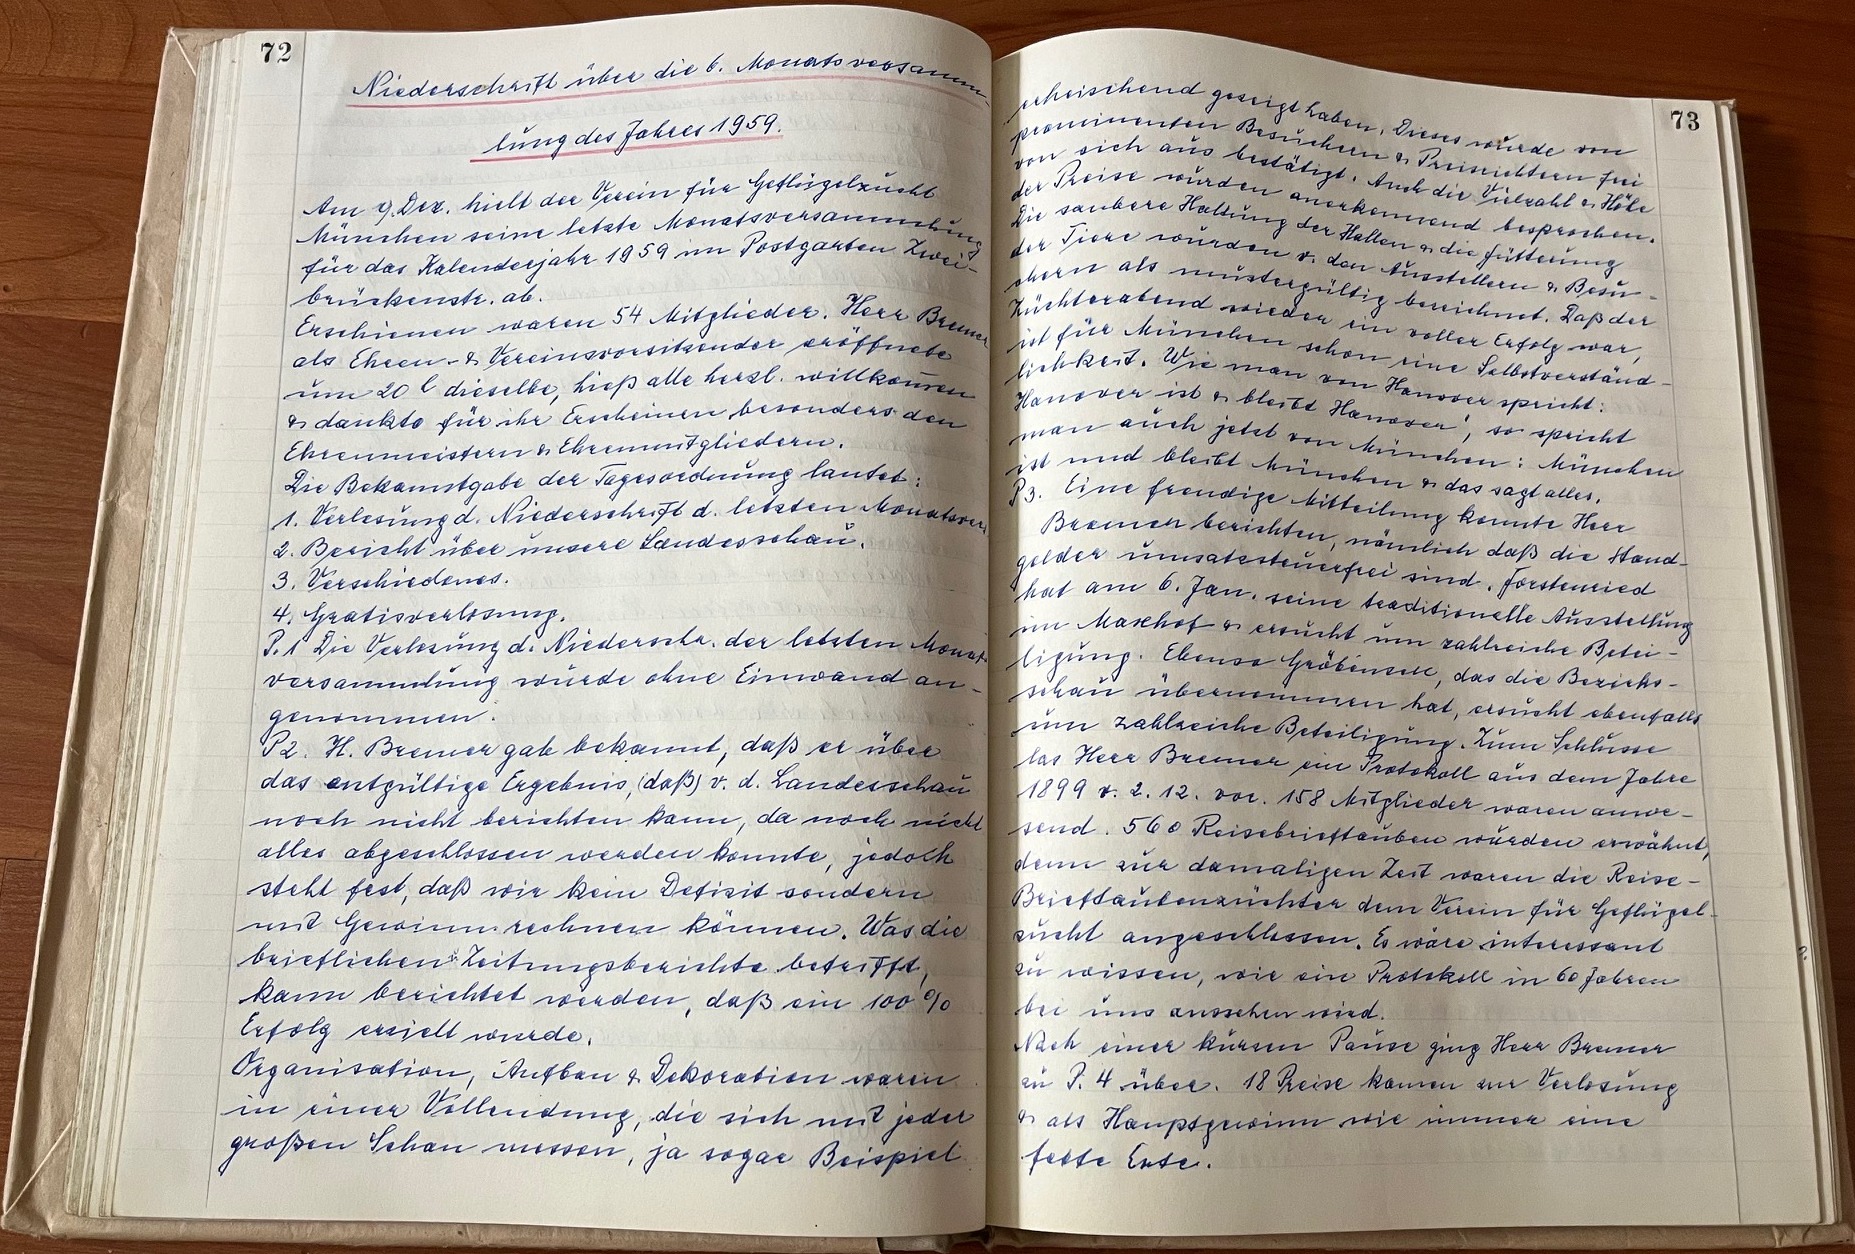 72
Niederschrift über die 6. Monatsversamm-
lung des Jahres 1959.
Am 9. Dez. hielt der Verein für Geflügelzucht
München seine letzte Monatsversammlung
für das Kalenderjahr 1959 im Postgarten Zwei-
brückenstr. ab.
Erschienen waren 54 Mitglieder. Herr Bremer
als Ehren- & Vereinsvorsitzender eröffnete
um 20 h dieselbe, hieß alle herzl. willkom̄en
& dankte für ihr Erscheinen besonders den
Ehrenmeistern & Ehrenmitgliedern.
Die Bekanntgabe der Tagesordnung lautet:
1. Verlesung d. Niederschrift d. letzten Monatsver
2. Bericht über unsere Landesschau.
3. Verschiedenes.
4. Gratisverlosung.
P. 1 Die Verlesung d. Niederschr. der letzten Monats
versammlung wurde ohne Einwand an-
genommen.
P2. H. Bremer gab bekannt, daß er über
das entgültige Ergebnis, (daß) v. d. Landesschau
noch nicht berichten kann, da noch nicht
alles abgeschlossen werden konnte, jedoch
steht fest, daß wir kein Defizit sondern
mit Gewinn rechnen können. Was die
brieflichen & Zeitungsberichte betrifft,
kann berichtet werden, daß ein 100 %
Erfolg erzielt wurde.
Organisation, Aufbau & Dekoration waren
in einer Vollendung, die sich mit jeder
großen Schau messen, ja sogar Beispiel
73
erheischend gezeigt haben. Dieses wurde von
prominenten Besuchern & Preisrichtern frei
von sich aus bestätigt. Auch die Vielzahl & Höhe
der Preise wurden anerkennend besprochen.
Die saubere Haltung der Hallen & die Fütterung
der Tiere wurden v. den Ausstellern & Besu-
chern als mustergültig bezeichnet. Daß der
Züchterabend wieder ein voller Erfolg war,
ist für München schon eine Selbstverständ-
lichkeit. Wie man von Hanover spricht:
Hanover ist & bleibt Hanover', so spricht
man auch jetzt von München: München
ist und bleibt München & das sagt alles.
P3. Eine freudige Mitteilung konnte Herr
Bremer berichten, nämlich daß die Stand-
gelder umsatzsteuerfrei sind. Forstenried
hat am 6. Jan. seine traditionelle Ausstellung
im Maxhof & ersucht um zahlreiche Betei-
ligung. Ebenso Gröbenzell, das die Bezirks-
schau übernommen hat, ersucht ebenfalls
um zahlreiche Beteiligung. Zum Schlusse
las Herr Bremer ein Protokoll aus dem Jahre
1899 v. 2. 12. vor. 158 Mitglieder waren anwe-
send. 560 Reisebrieftauben wurden erwähnt,
denn zur damaligen Zeit waren die Reise-
Brieftaubenzüchter dem Verein für Geflügel-
zucht angeschlossen. Es wäre interessant
zu wissen, wie ein Protokoll in 60 Jahren
bei uns aussehen wird.
Nach einer kurzen Pause ging Herr Bremer
zu P. 4 über. 18 Preise kamen zur Verlosung
& als Hauptgewinn wie immer eine
fette Ente.